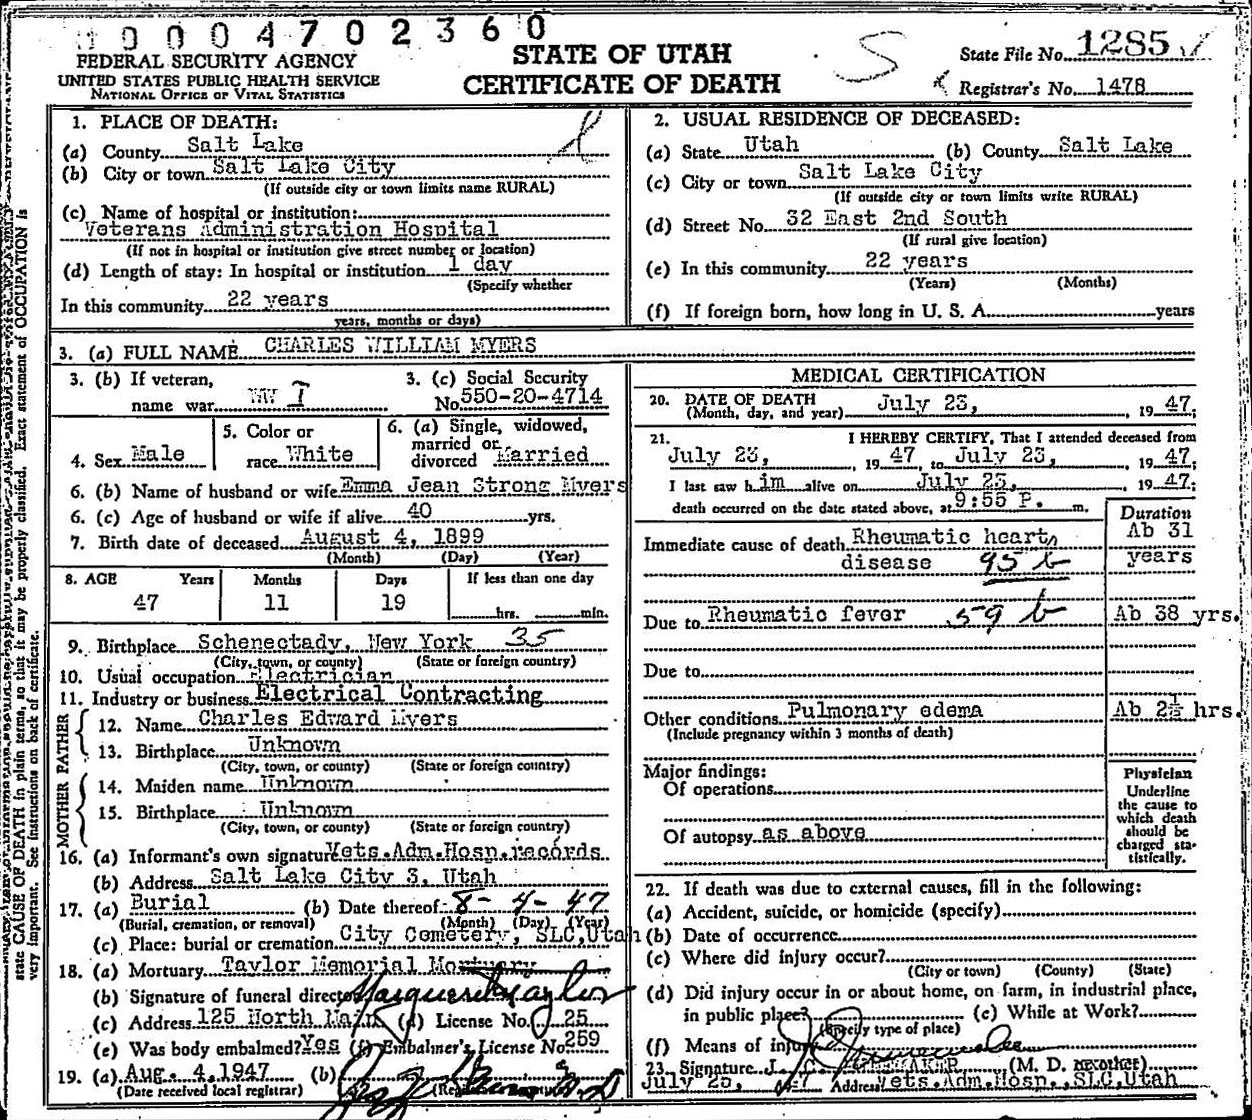 0004702360
FEDERAL SECURITY AGENCY
UNITED STATES PUBLIC HEALTH SERVICE
NATIONAL OFFICE OF VITAL STATISTICS
STATE OF UTAH
CERTIFICATE OF DEATH
State File No. 1285
Registrar's No. 1478
state CAUSE OF DEATH in plain terms, so that it may be properly classified. Exact statement of OCCUPATION is
very important. See instructions on back of certificate.
1. PLACE OF DEATH:
(a) County Salt Lake
(b) City or town Salt Lake City
(If outside city or town limits name RURAL)
(c) Name of hospital or institution:
Veterans Administration Hospital
(If not in hospital or institution give street number or location)
(d) Length of stay: In hospital or institution 1 day
(Specify whether
In this community 22 years
years, months or days)
2. USUAL RESIDENCE OF DECEASED:
(a) State Utah (b) County Salt Lake
(c) City or town Salt Lake City
(If outside city or town limits write RURAL)
(d) Street No. 32 East 2nd South
(If rural give location)
(e) In this community 22 years
(Years) (Months)
(f) If foreign born, how long in U. S. A. years
3. (a) FULL NAME CHARLES WILLIAM MYERS
3. (b) If veteran,
name war WW I
3. (c) Social Security
No. 550-20-4714
4. Sex Male
5. Color or
race White
6. (a) Single, widowed,
married or
divorced Married
6. (b) Name of husband or wife Emma Jean Strong Myers
6. (c) Age of husband or wife if alive 40 yrs.
7. Birth date of deceased August 4, 1899
(Month) (Day) (Year)
8. AGE Years Months Days If less than one day
47 11 19 hrs. min.
9. Birthplace Schenectady, New York 35
(City, town, or county) (State or foreign country)
10. Usual occupation Electrician
11. Industry or business Electrical Contracting
FATHER
12. Name Charles Edward Myers
13. Birthplace Unknown
(City, town, or county) (State or foreign country)
MOTHER
14. Maiden name Unknown
15. Birthplace Unknown
(City, town, or county) (State or foreign country)
16. (a) Informant's own signature Vets.Adm.Hosp.records
(b) Address Salt Lake City 3, Utah
17. (a) Burial (b) Date thereof 8-4-47
(Burial, cremation, or removal) (Month) (Day) (Year)
(c) Place: burial or cremation City Cemetery, SLC,Utah
18. (a) Mortuary Taylor Memorial Mortuary
(b) Signature of funeral director Marguerite Taylor
(c) Address 125 North Main (d) License No. 25
(e) Was body embalmed? Yes (f) Embalmer's License No. 259
19. (a) Aug. 4,1947 (b)
(Date received local registrar)
MEDICAL CERTIFICATION
20. DATE OF DEATH
(Month, day, and year) July 23, 1947;
21. I HEREBY CERTIFY, That I attended deceased from
July 23, 1947 to July 23, 1947;
I last saw him alive on July 23, 1947;
death occurred on the date stated above, at 9:55 P. m.
Duration
Immediate cause of death Rheumatic heart Ab 31
disease 95 b years
Due to Rheumatic fever 59 b Ab 38 yrs.
Due to
Other conditions Pulmonary edema Ab 2½ hrs.
(Include pregnancy within 3 months of death)
Major findings:
Of operations
Of autopsy as above
Physician
Underline
the cause to
which death
should be
charged sta-
tistically.
22. If death was due to external causes, fill in the following:
(a) Accident, suicide, or homicide (specify)
(b) Date of occurrence
(c) Where did injury occur?
(City or town) (County) (State)
(d) Did injury occur in or about home, on farm, in industrial place,
in public place? (e) While at Work?
(Specify type of place)
(f) Means of injury
23. Signature (M. D. or other)
July 25, Address Vets.Adm.Hosp.,SLC,Utah